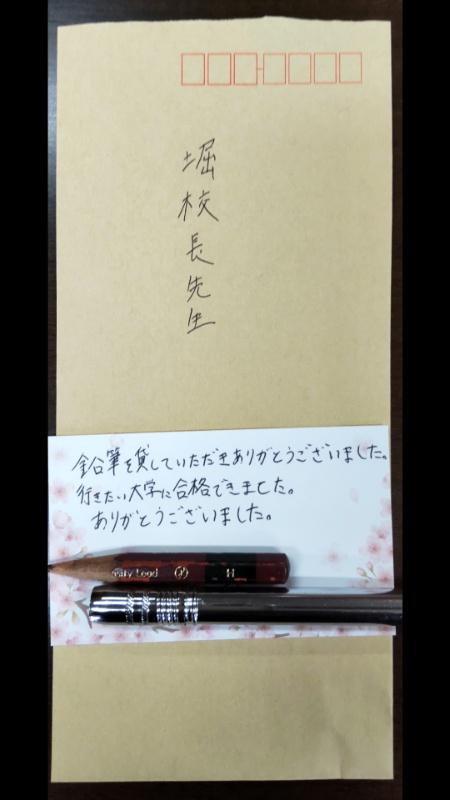 堀校長先生
鉛筆を貸していただきありがとうございました。
行きたい大学に合格できました。
ありがとうございました。
H